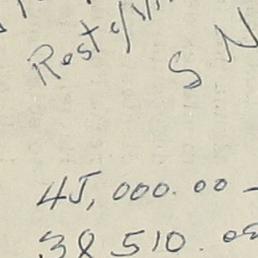 Rest
S N
45,000.00 -
38 510.00